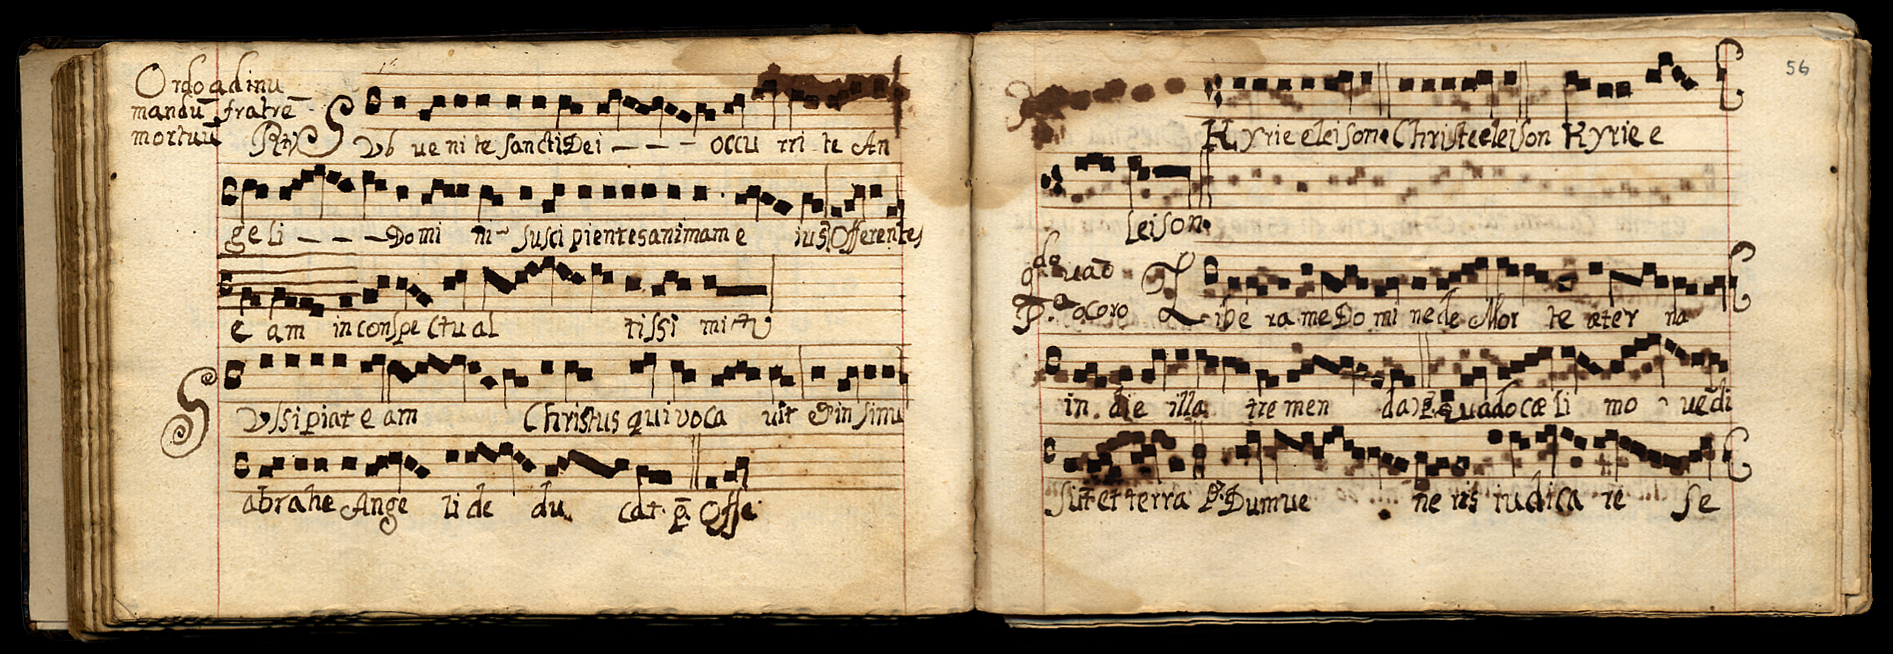 Ordo ad inu
mandū fratrē
mortuū
Rx Sub ue ni te sancti Dei - - - occu rri te An
ge li - - - Do mi ni susci pientes animam e ius Offerentes
e am in conspe ctu al tissi mi
Sussipiat e am Christus qui voca uit & in sinu
abrahe Ange li de du cat. p̄ Offe
56
Kyrie eleison. Christe eleison Kyrie e
leison.
P. o coro Libe ra me Do mi ne de Mor te æter na
in die illa tremen da Quādo cæ li mo uēdi
sūt et terra Dum ue ne ris iudica re se